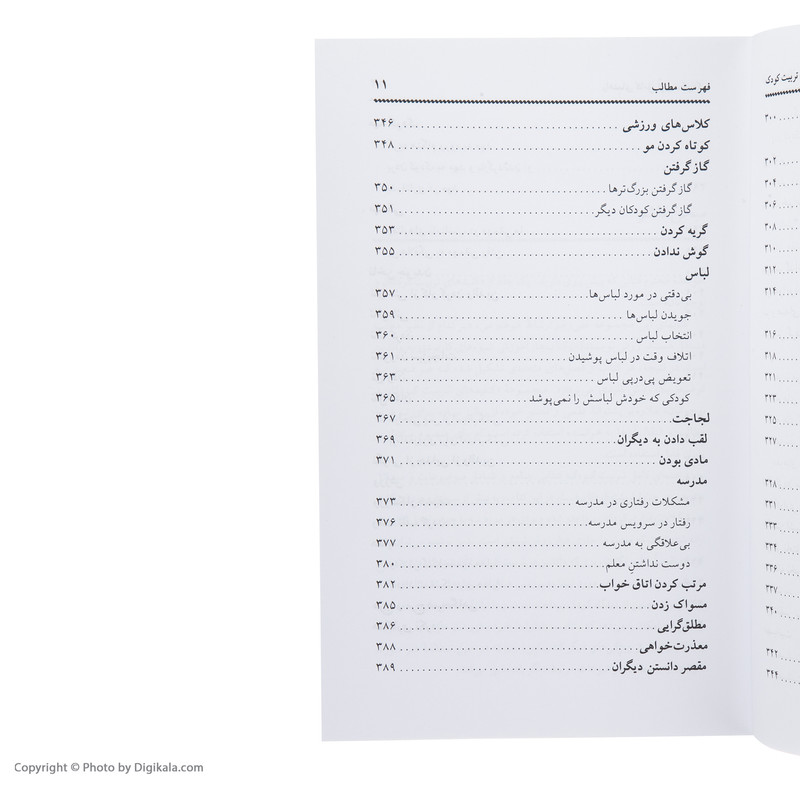 تربیت کودکی
۳۰۰
۳۰۲
۳۰۴
۳۰۶
۳۰۸
۳۱۰
۳۱۲
۳۱۴
۳۱۶
۳۱۸
۳۲۱
۳۲۳
۳۲۵
۳۲۷
۳۲۸
۳۳۱
۳۳۳
۳۳۴
۳۳۶
۳۳۷
۳۴۰
۳۴۲
۳۴۴
فهرست مطالب ۱۱
کلاس‌های ورزشی ۳۴۶
کوتاه کردن مو ۳۴۸
گاز گرفتن
گاز گرفتن بزرگ‌ترها ۳۵۰
گاز گرفتن کودکان دیگر ۳۵۱
گریه کردن ۳۵۳
گوش ندادن ۳۵۵
لباس
بی‌دقتی در مورد لباس‌ها ۳۵۷
جویدن لباس‌ها ۳۵۹
انتخاب لباس ۳۶۰
اتلاف وقت در لباس پوشیدن ۳۶۱
تعویض پی‌درپی لباس ۳۶۳
کودکی که خودش لباسش را نمی‌پوشد ۳۶۵
لجاجت ۳۶۷
لقب دادن به دیگران ۳۶۹
مادی بودن ۳۷۱
مدرسه
مشکلات رفتاری در مدرسه ۳۷۳
رفتار در سرویس مدرسه ۳۷۶
بی‌علاقگی به مدرسه ۳۷۷
دوست نداشتنِ معلم ۳۸۰
مرتب کردن اتاق خواب ۳۸۲
مسواک زدن ۳۸۵
مطلق‌گرایی ۳۸۶
معذرت‌خواهی ۳۸۸
مقصر دانستن دیگران ۳۸۹
Copyright © Photo by Digikala.com